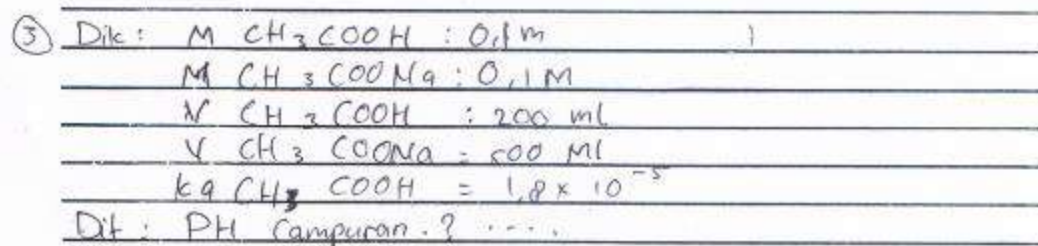 ③ Dik : M CH3COOH : 0,1 m
M CH3COONa : 0,1 M
V CH3COOH : 200 ml
V CH3COONa = 500 Ml
ka CH3COOH = 1,8 x 10^-5
Dit : PH Campuran . ? ....